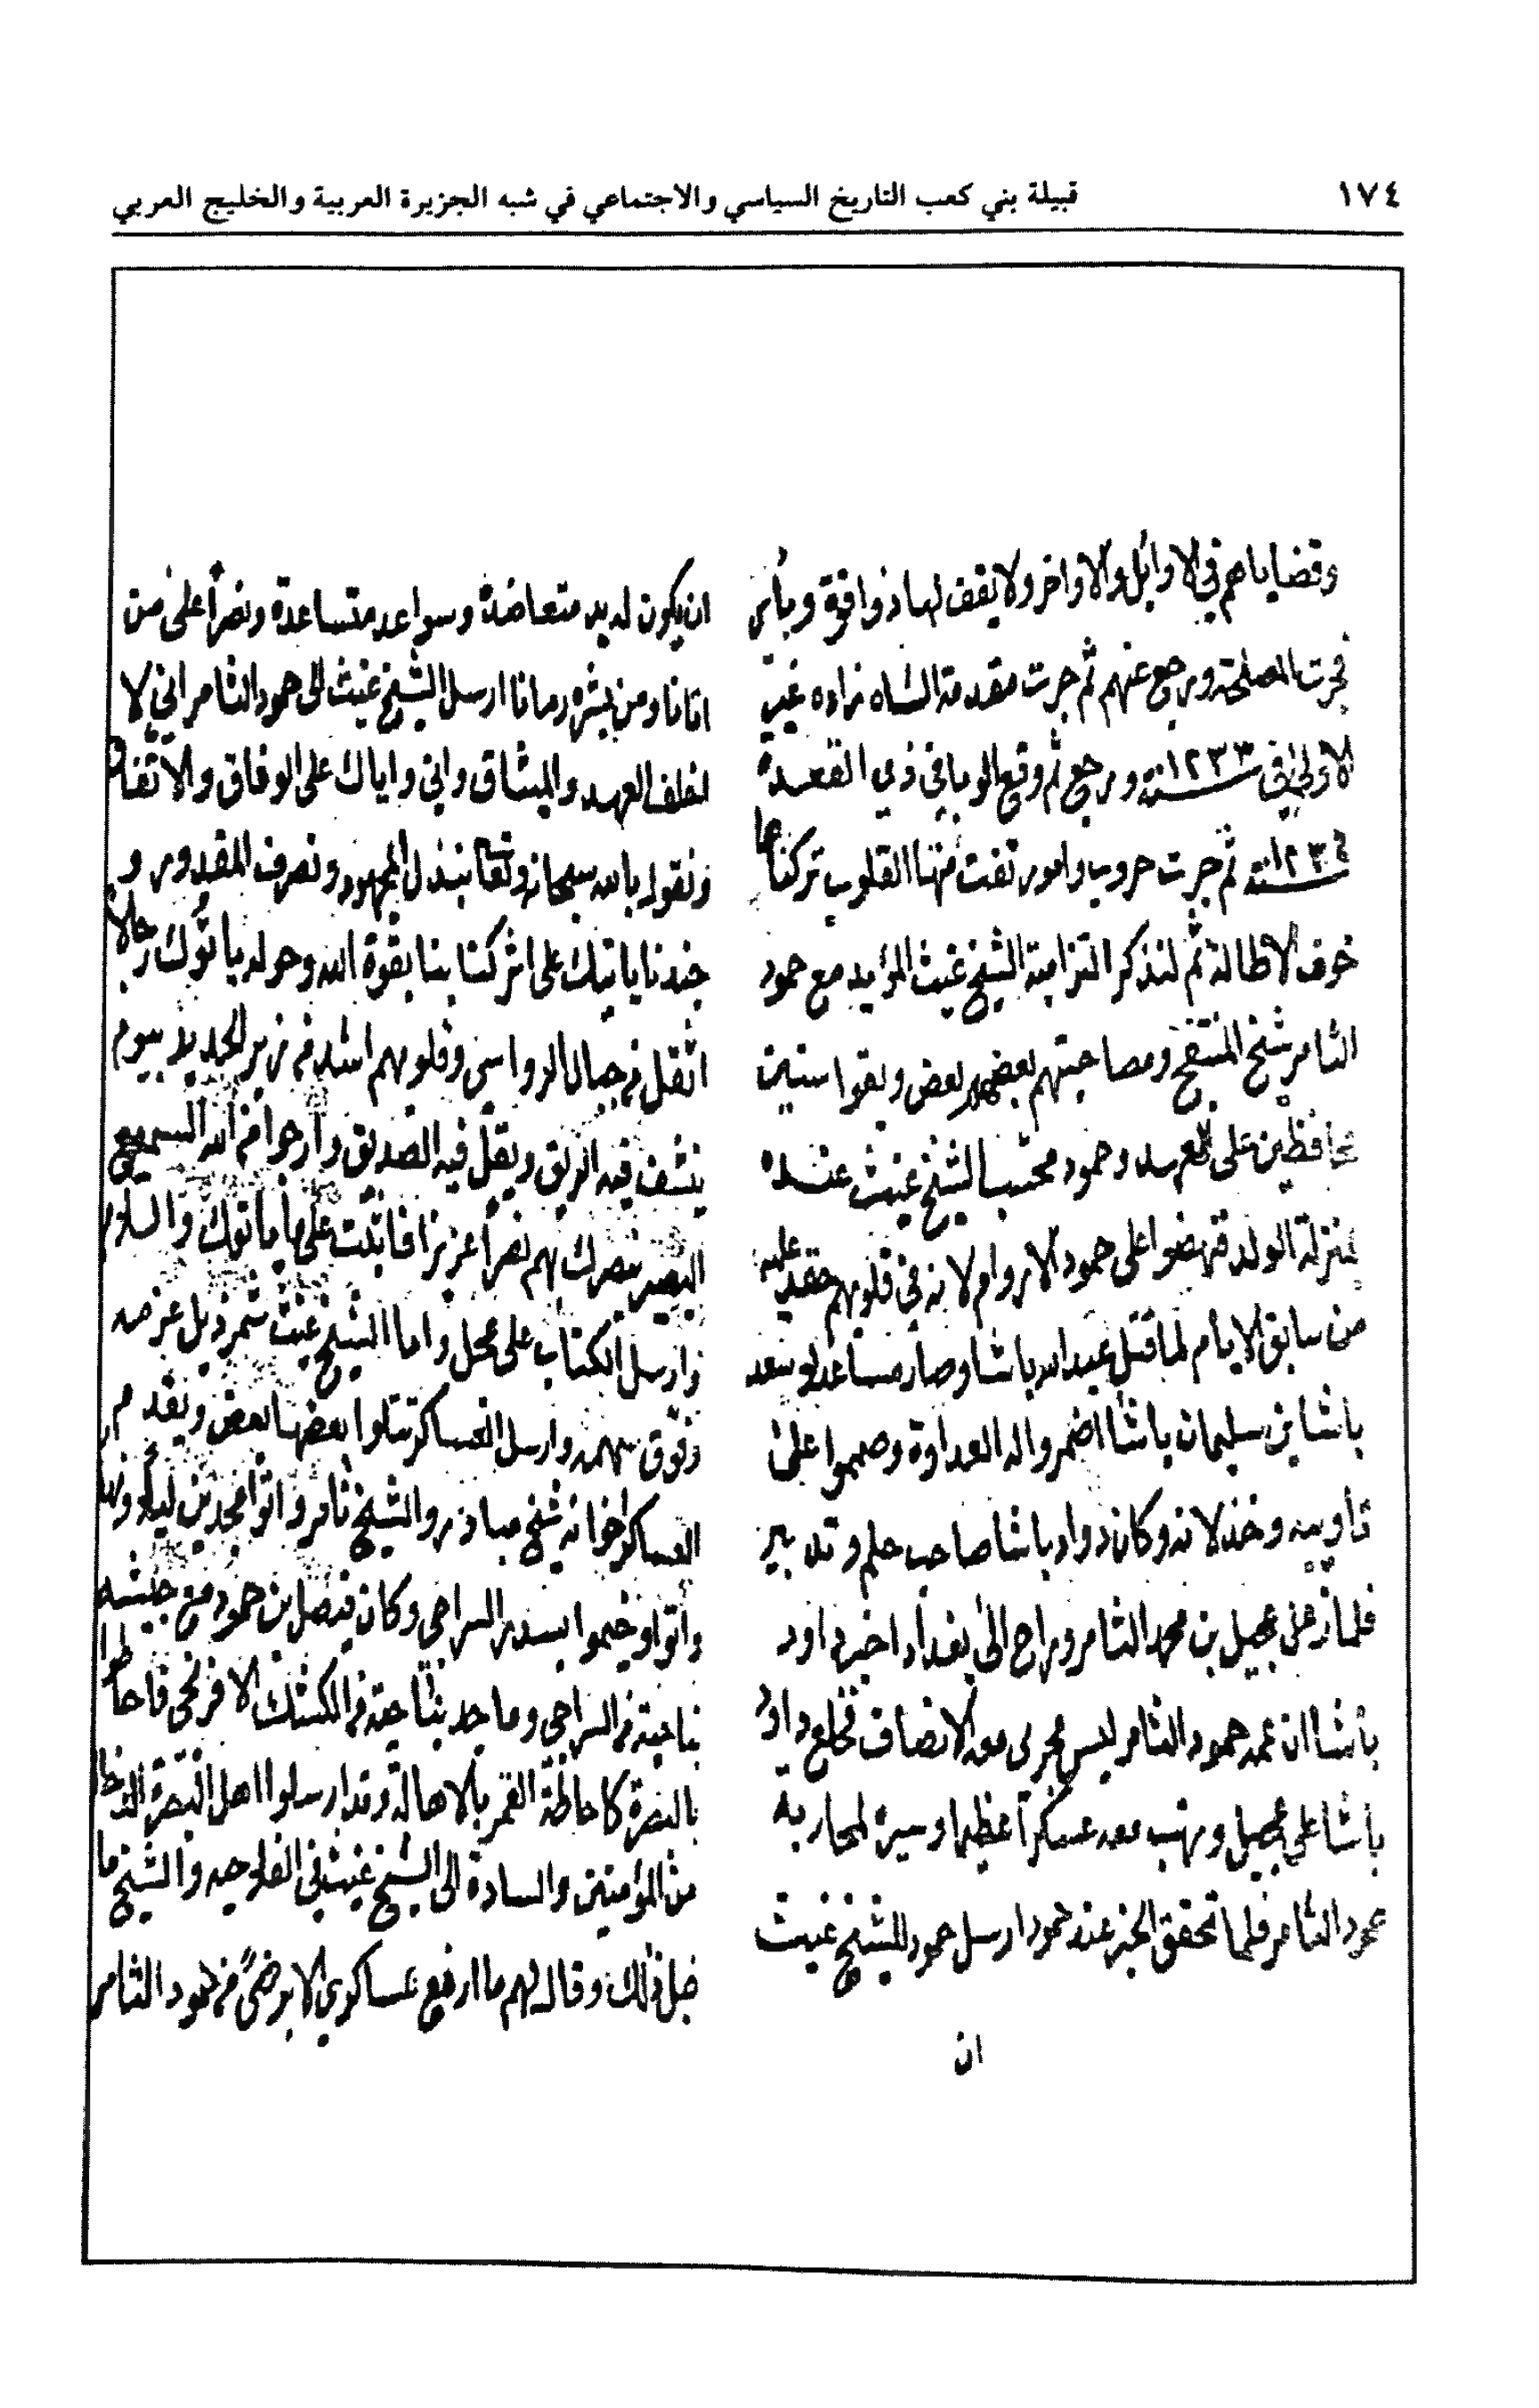 ١٧٤
قبيلة بني كعب التاريخ السياسي والاجتماعي في شبه الجزيرة العربية والخليج العربي
وقضاياهم في الاوائل والاواخر ولا يقف لها ذوافة
فجرت المصلحة ورجع عنهم ثم جرت مقدمة الشاه زاده غير
الاولى في سنة ١٢٣٣ ورجع ثم وقع الوبا في ذي القعدة
سنة ١٢٣٤ ثم جرت حروب وامور تفت منها القلوب تركناها
خوف الاطالة ثم لنذكر التزامية الشيخ غيث المؤيد مع حمود
الثامر شيخ المنتفج ومصاحبتهم بعضهم بعض وبقوا سنين
محافظين على العهد وحمود محتسب الشيخ غيث عنده
بمنزلة الولد فنهضوا على حمود الاروام لانه في قلوبهم حقد عليه
من سابق الايام لما قتل عبد الله باشا وصار مساعد لوسعد
باشا بن سليمان باشا اضمروا له العداوة وصمموا على
تأويبه وخذلانه وكان دواد باشا صاحب حلم وتدبير
فلما زعل عجيل بن محمد الثامر وراح الى بغداد اخبر داود
باشا ان عمه حمود الثامر ليس مجرى معه الانصاف فخلع داود
باشا على عجيل ونهب معه عسكراً عظيما وسيره لمحاربة
حمود الثامر فلما تحقق الخبر عند حمود ارسل حمود للشيخ غيث
ان
ان يكون له يد متعاضدة وسواعد متساعدة ونصراً على من
اتانا ومن بشره رمانا ارسل الشيخ غيث الى حمود الثامر اني لا
اخلف العهد والميثاق واني واياك على الوفاق والاتفاق
ونقول بالله سبحانه وتعالى نبذل المجهود ونصرف المقدور و
جندنا ياتيك على اثر كتابنا بقوة الله وحوله ياتوك رجالا
اثقل من جبال الرواسي وقلوبهم اشد من زبر الحديد بيوم
ينشف فيه الريق ويقل فيه الصديق وارجوا من الله السميع
البصير ينصرك بهم نصراً عزيزا فاثبت على ما ماتوك والسلام
وارسل الكتاب على عجل واما الشيخ غيث شمر ذيل عزمه
وفوق سهمه وارسل العساكر تتلوا بعضها بعض ويقدم
العساكر اخوانه شيخ مبادر والشيخ ثامر واتوا مجدين ليلا ونهارا
واتوا وخيموا بسدر السراجي وكان فيصل بن حمود مع جيشه
بناحية من السراجي وماجد بناحية من الكشك الافرنجي فاحاطوا
بالبصرة كاحاطة القمر بالاهالة وقد ارسلوا اهل البصرة
من المؤمنين والسادة الى الشيخ غيث في الفلاحيه والشيخ ما
قبل ذلك وقال لهم ما ارفع عساكري الا برضىً من حمود الثامر